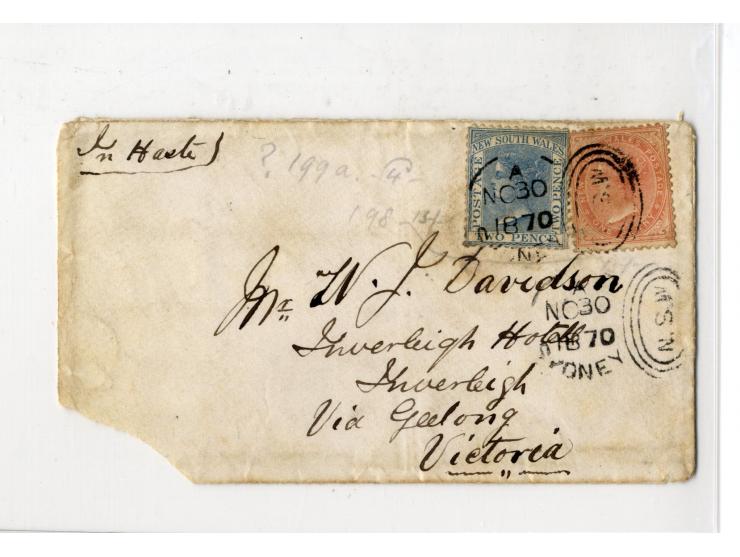 In Haste
? 199a
198
NEW SOUTH WALES
POSTAGE
TWO PENCE
TWO PENCE
A
NO 30
1870
SYDNEY
N.S.W
Mr W. J. Davidson
Inverleigh Hotel
Inverleigh
Via Geelong
Victoria
NO 30
1870
SYDNEY
N.S.W